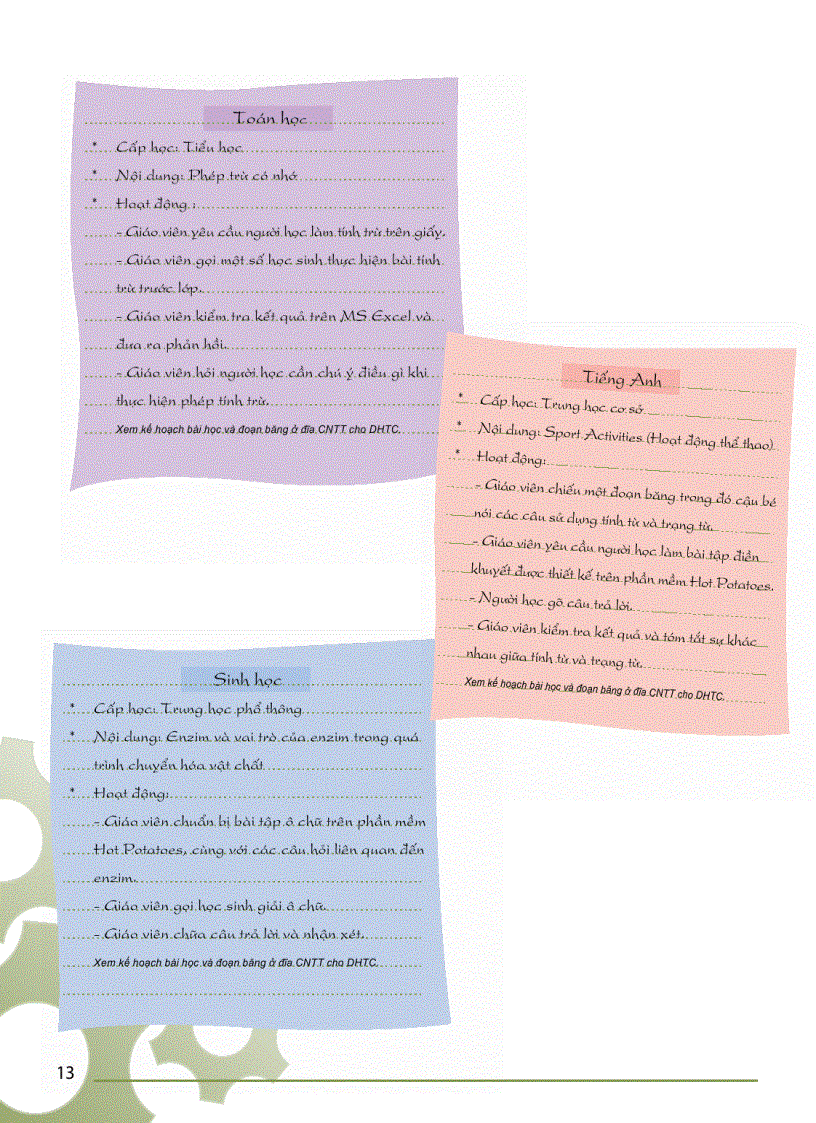 Toán học
* Cấp học: Tiểu học
* Nội dung: Phép trừ có nhớ
* Hoạt động :
- Giáo viên yêu cầu người học làm tính trừ trên giấy.
- Giáo viên gọi một số học sinh thực hiện bài tính
trừ trước lớp.
- Giáo viên kiểm tra kết quả trên MS Excel và
đưa ra phản hồi.
- Giáo viên hỏi người học cần chú ý điều gì khi
thực hiện phép tính trừ.
Xem kế hoạch bài học và đoạn băng ở đĩa CNTT cho DHTC.
Tiếng Anh
* Cấp học: Trung học cơ sở
* Nội dung: Sport Activities (Hoạt động thể thao)
* Hoạt động:
- Giáo viên chiếu một đoạn băng trong đó cậu bé
nói các câu sử dụng tính từ và trạng từ.
- Giáo viên yêu cầu người học làm bài tập điền
khuyết được thiết kế trên phần mềm Hot Potatoes.
- Người học gõ câu trả lời.
- Giáo viên kiểm tra kết quả và tóm tắt sự khác
nhau giữa tính từ và trạng từ.
Xem kế hoạch bài học và đoạn băng ở đĩa CNTT cho DHTC.
Sinh học
* Cấp học: Trung học phổ thông
* Nội dung: Enzim và vai trò của enzim trong quá
trình chuyển hóa vật chất
* Hoạt động:
- Giáo viên chuẩn bị bài tập ô chữ trên phần mềm
Hot Potatoes, cùng với các câu hỏi liên quan đến
enzim.
- Giáo viên gọi học sinh giải ô chữ.
- Giáo viên chữa câu trả lời và nhận xét.
Xem kế hoạch bài học và đoạn băng ở đĩa CNTT cho DHTC.
13